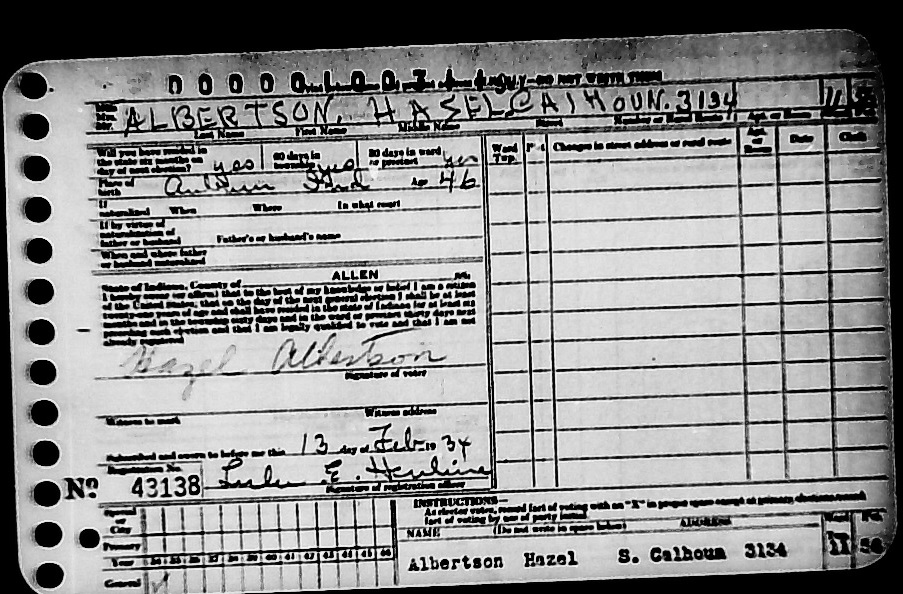 DO NOT WRITE THIS
Mrs. ALBERTSON, HAZEL CALHOUN. 3134 11
Last Name First Name Middle Name Street Number or Rural Route Apt. or Room
Will you have resided in the state six months on day of next election? yes 60 days in township yes 30 days in ward or precinct yes
Place of birth Auburn Ind Age 46
If naturalized When Where In what court
If by virtue of naturalization of father or husband Father's or husband's name
When and where father or husband naturalized
State of Indiana, County of ALLEN ss.
I hereby swear (or affirm) that to the best of my knowledge or belief I am a citizen
of the United States; that on the day of the next general election I shall be at least
twenty-one years of age and shall have resided in the state of Indiana for at least six
months and in the township sixty days and in the ward or precinct thirty days next
preceding such election and that I am legally qualified to vote and that I am not
already registered
Hazel Albertson
Signature of voter
Witness to mark Witness address
Subscribed and sworn to before me this 13 day of Feb 19 34
Registration No.
No 43138
Signature of registration officer
Ward Twp. Pct. Changes in street address or rural route Apt. or Room Date Clerk
INSTRUCTIONS—
As elector votes, record fact of voting with an "X" in proper space except at primary elections record
fact of voting by use of party initial
Special or City
Primary
Year 34 35 36 37 38 39 40 41 42 43 44 45 46
General
NAME (Do not write in space below) ADDRESS Ward Pct.
Albertson Hazel S. Calhoun 3134 11 58